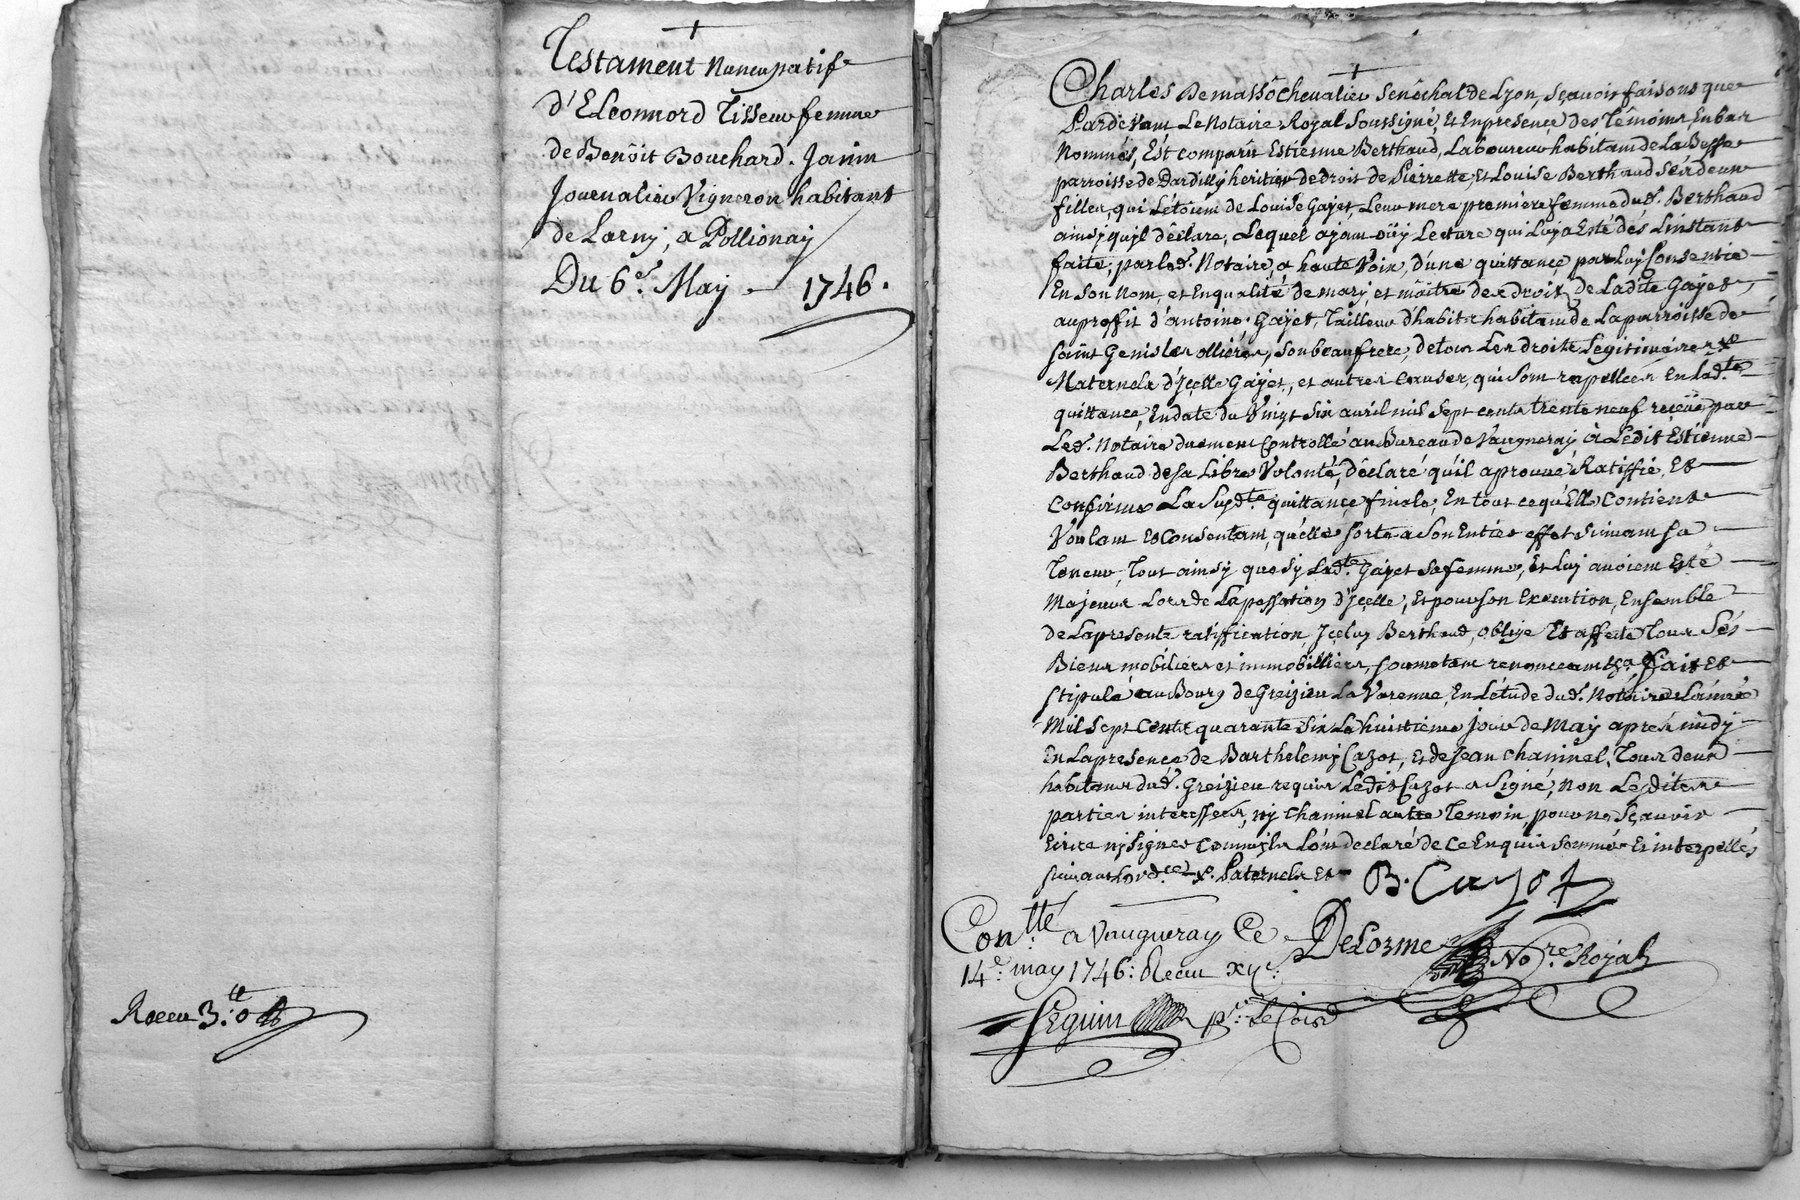 Testament Nuncupatif
d'Eleonnord Tisseur femme
de Benoit Bouchard. Janin
Journalier Vigneron habitant
de Larny, a Pollionay
Du 6e. May 1746.
Receu 3.tt 0
Charles De Massô Chevalier Senêchal de Lyon, sçavoir faisons que
Pardevant Le Notaire Royal Soussigné, Et En presence des Têmoins En bas
Nommés, Est comparû Estienne Berthaud, Laboureur habitant de La Beffe
parroisse de Dardilly heritier de droit de Pierrette, et Louise Berthaud Ses deux
filles, qui L'étoient de Louise Gayet, Leur mere premiere femme dud. Berthaud
ainsy quil dêclare, Lequel ayant oüy Lecture qui Luy a Esté dés Linstant
faite, par led. Notaire, a haute Voix, d'une quittance par Luy Consentie
En Son Nom, et En qualité de mary, et maître des droits de Ladite Gayet,
au proffit d'antoine Gayet, Tailleur d'habits habitant de La parroisse de
saint Genis les ollières, son beaufrere, de tous Les droits Legitimaires x
Maternels d'Jcelle Gayet, et autres Causes, qui Sont rapellées En lad.te
quittance, En date du Vingt Six avril mil Sept cents trente neuf reçeüe par
Led. Notaire duement Controllé au Bureau de Vaugneray, à Ledit Estienne
Berthaud de sa Libre Volonté, dêclaré qu'il aprouve, Ratiffie, Et
Confirme La Susd.te quittance finale, En tout ce qu'Elle Contient
Voulant Et Consentant, quelle sorte a Son Entier effet Suivant sa
Teneur, Tout ainsy que sy Lad.te Gayet sa femme, et Luy avoient Esté
Majeurs Lors de La passation d'Jcelle, Et pour son Execution, Ensemble
de La presente ratiffication, Jceluy Berthaud, oblige Et affecte Tous Ses
Biens mobiliers et immobilliers, soumetant renonceant &a. Fait et
Stipulé au Bourg de Greizieu La Varenne, En L'étude dud. Notaire L'année
Mil Sept Cents quarante Six Le huitieme jour de May apres midy
En La presence de Barthelemy Cazot, et de Jean Chaninel, Tous deux
habitans dud. Greizieu requis Ledit Cazot a Signé, Non Lesdites
parties interessées, ny Chaninel autre Temoin, pour ne Sçavoir
Ecrire ny Signer Comm'ils L'ont declaré de ce Enquis sommés Et interpellés
suivant Lord.ce x. Paternels Et
B. Cazot
Con.llé a Vaugneray Ce
14e. may 1746: Receu
DeLorme No.re Royal
Seguin